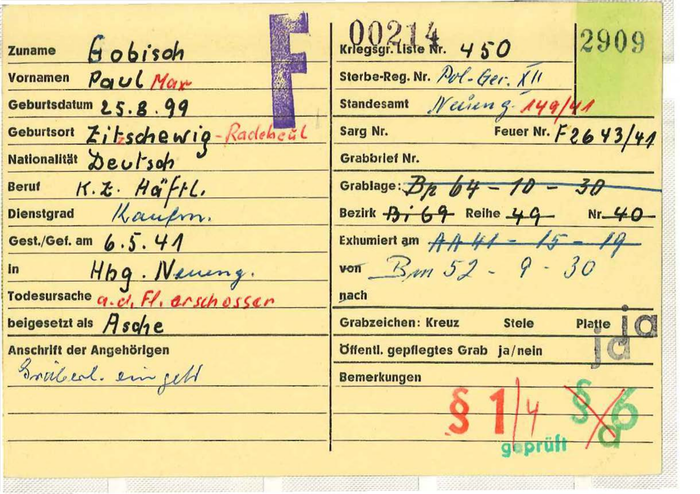 Zuname Gobisch
Vornamen Paul Max
Geburtsdatum 25.8.99
Geburtsort Zitzschewig - Radebeul
Nationalität Deutsch
Beruf K.Z. Häftl.
Dienstgrad Kaufm.
Gest./Gef. am 6.5.41
in Hbg. Neueng.
Todesursache a.d. Fl. erschossen
beigesetzt als Asche
Anschrift der Angehörigen
F
00214
2909
Kriegsgr. Liste Nr. 450
Sterbe-Reg. Nr. Pol-Ger. XII
Standesamt Neueng. 149/41
Sarg Nr. Feuer Nr. F2643/41
Grabbrief Nr.
Grablage: Bp 64 - 10 - 30
Bezirk Bi69 Reihe 49 Nr. 40
Exhumiert am AA41 - 15 - 19
von Bm 52 - 9 - 30
nach
Grabzeichen: Kreuz Stele Platte ja
Öffentl. gepflegtes Grab ja/nein ja
Bemerkungen
§ 1/4 § 6
geprüft d